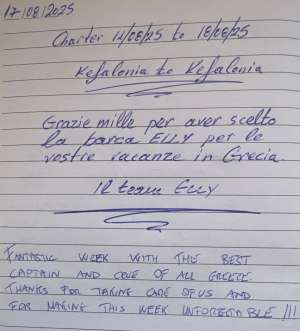 17/08/2025
Charter 11/08/25 to 18/08/25
Kefalonia to Kefalonia
Grazie mille per aver scelto
la barca ELLY per le
vostre vacanze in Grecia.
Il team Elly
FANTASTIC WEEK WITH THE BEST
CAPTAIN AND COVE OF ALL GREECE
THANKS FOR TAKING CARE OF US AND
FOR MAKING THIS WEEK UNFORGETABLE !!!